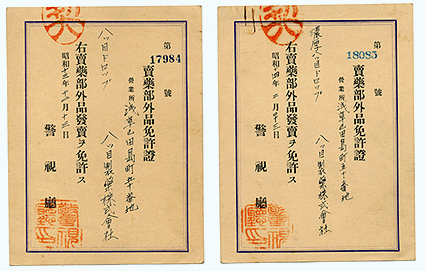 第 17984 號
賣藥部外品免許證
營業所 浅草区田島町五十番地
八ッ目製薬株式會社
八ッ目ドロップ
右賣藥部外品發賣ヲ免許ス
昭和十三年 月十三日
警視廳
第 18085 號
賣藥部外品免許證
營業所 浅草区田島町五十番地
八ッ目製薬株式會社
濃厚八ッ目ドロップ
右賣藥部外品發賣ヲ免許ス
昭和十四年二月 三日
警視廳